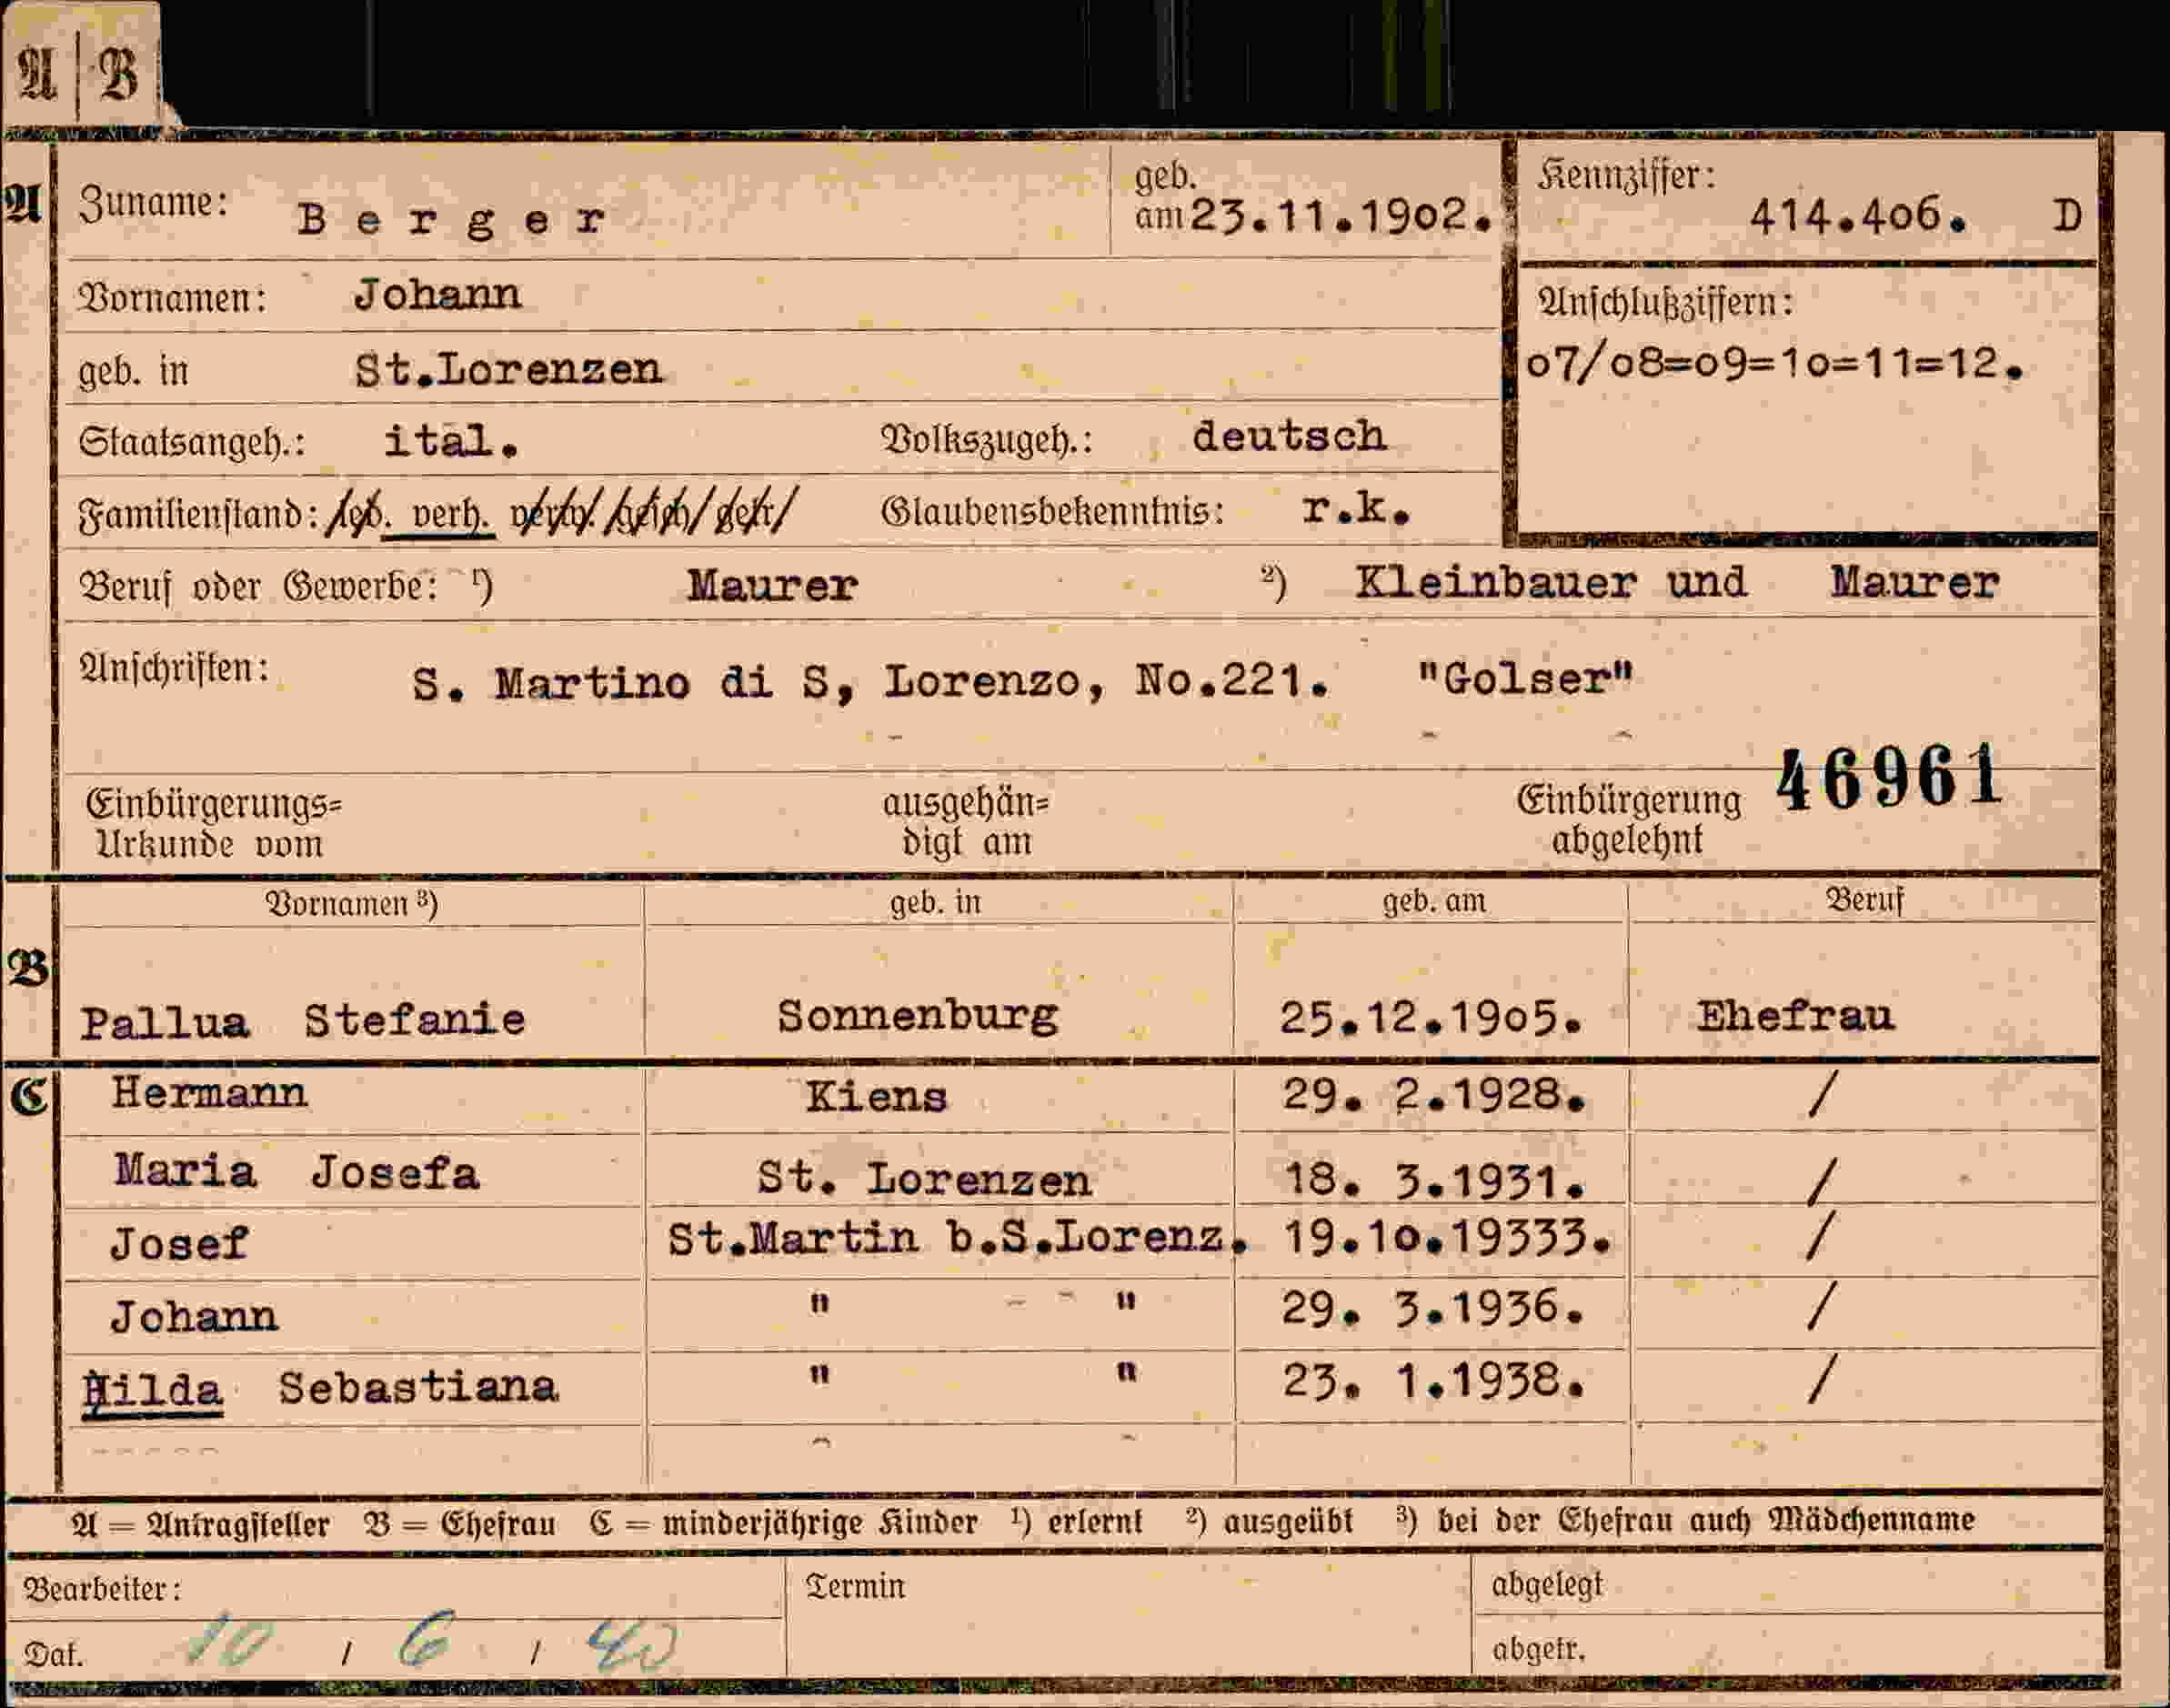 A | B
A Zuname: Berger geb. am 23.11.19o2. Kennziffer: 414.4o6. D
Vornamen: Johann
Anschlußziffern:
geb. in St.Lorenzen o7/o8=o9=1o=11=12.
Staatsangeh.: ital. Volkszugeh.: deutsch
Familienstand: led. verh. verw. gesch. getr. Glaubensbekenntnis: r.k.
Beruf oder Gewerbe: ¹) Maurer ²) Kleinbauer und Maurer
Anschriften: S. Martino di S, Lorenzo, No.221. "Golser"
46961
Einbürgerungs= ausgehän= Einbürgerung
Urkunde vom digt am abgelehnt
Vornamen ³) geb. in geb. am Beruf
B
Pallua Stefanie Sonnenburg 25.12.19o5. Ehefrau
C Hermann Kiens 29. 2.1928. /
Maria Josefa St. Lorenzen 18. 3.1931. /
Josef St.Martin b.S.Lorenz. 19.1o.19333. /
Johann " " 29. 3.1936. /
Hilda Sebastiana " " 23. 1.1938. /
A = Antragsteller B = Ehefrau C = minderjährige Kinder ¹) erlernt ²) ausgeübt ³) bei der Ehefrau auch Mädchenname
Bearbeiter: Termin abgelegt
Dat. 10 / 6 / 40 abgetr.